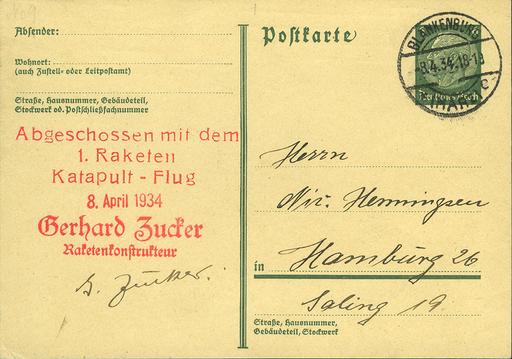 Absender:
Wohnort:
(auch Zustell- oder Leitpostamt)
Straße, Hausnummer, Gebäudeteil,
Stockwerk od. Postschließfachnummer
Abgeschossen mit dem
1. Raketen
Katapult - Flug
8. April 1934
Gerhard Zucker
Raketenkonstrukteur
G. Zucker.
Postkarte
BLANKENBURG
-8.4.34.18-19
c
Herrn
Nic. Henningsen
in Hamburg 26
Saling 19.
Straße, Hausnummer,
Gebäudeteil, Stockwerk